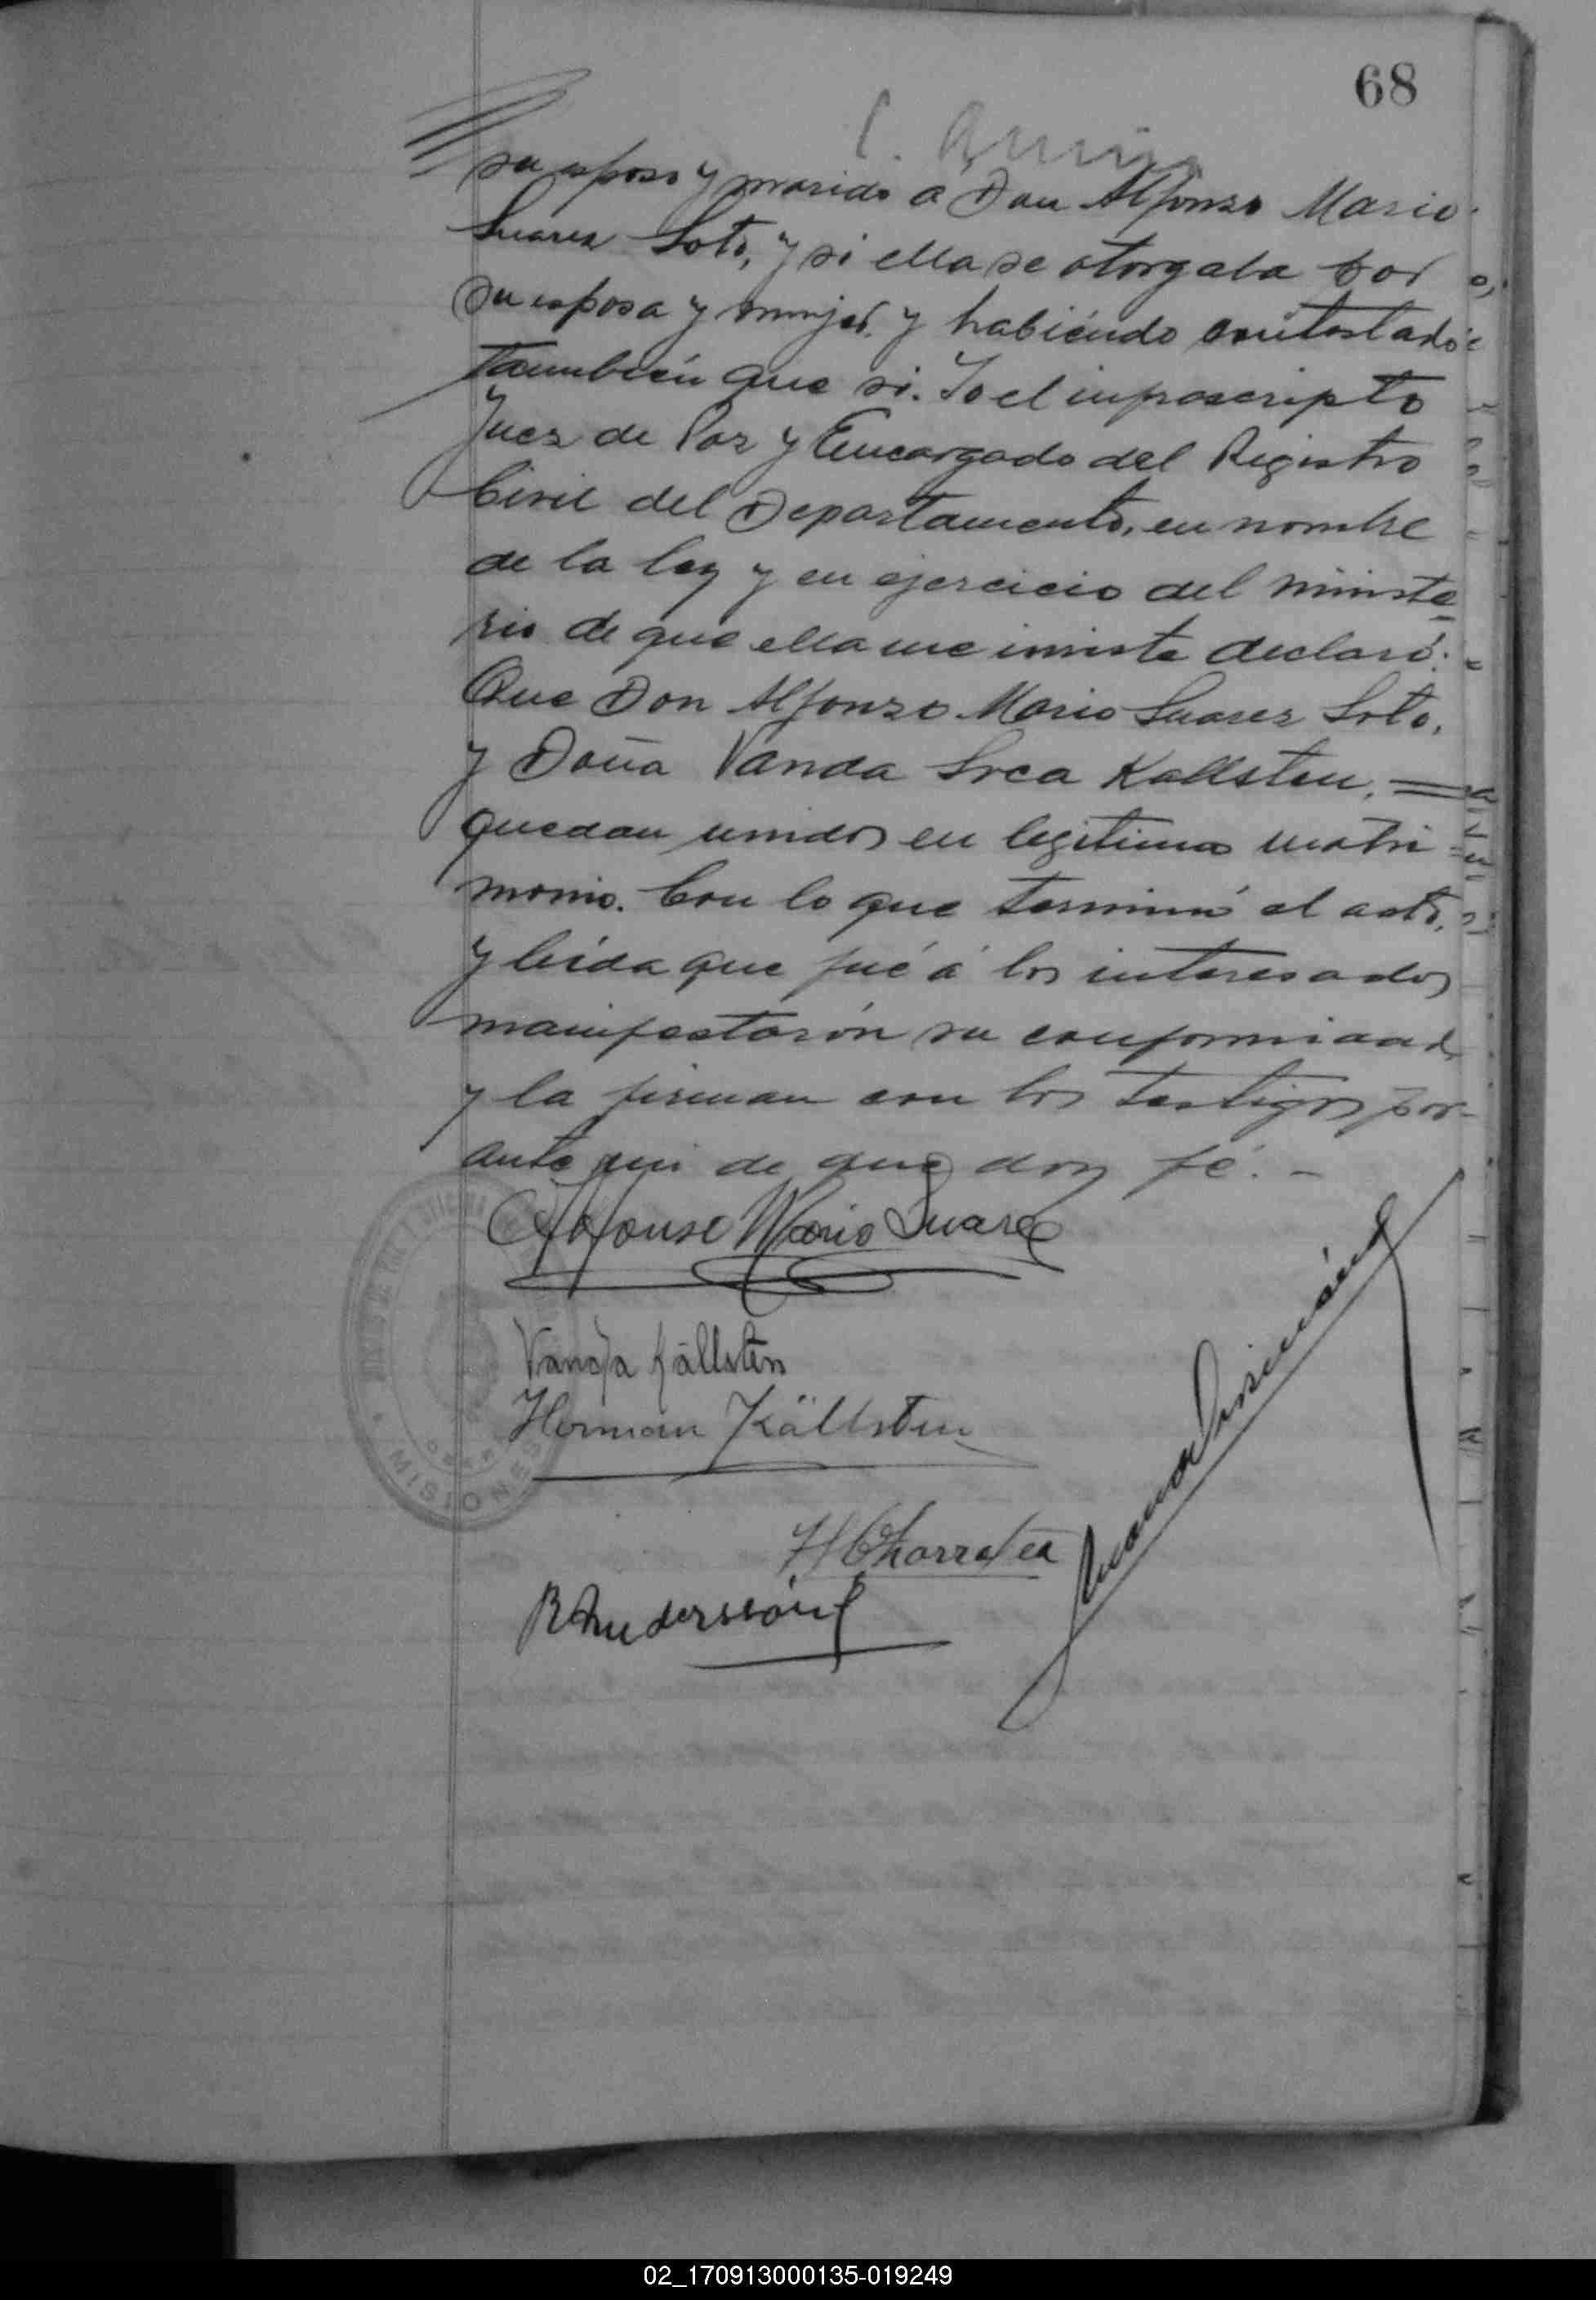 68
su esposo y marido a Don Alfonso Mario
Suarez Soto, y si ella se otorgaba por
su esposa y mujer. y habiéndo contestado
tammbién que si. Yo el infrascripto
Juez de Paz y Encargado del Registro
Civil del Departamento, en nombre
de la ley y en ejercicio del ministe
rio de que ella me inviste declaró:
Que Don Alfonzo Mario Suarez Soto,
y Doña Vanda Srea Kallsten,
quedan unidos en legitimo matri
monio. Con lo que terminó el acto,
y leida que fué á los interesados
manifestarón su conformidad
y la firman con los testigos por
ante mi de que doy fé. -
Alfonso Mario Suarez
Vanja Källstén
Herman Källsten
H Charratea
R Anderssón
MISIONES
02_170913000135-019249